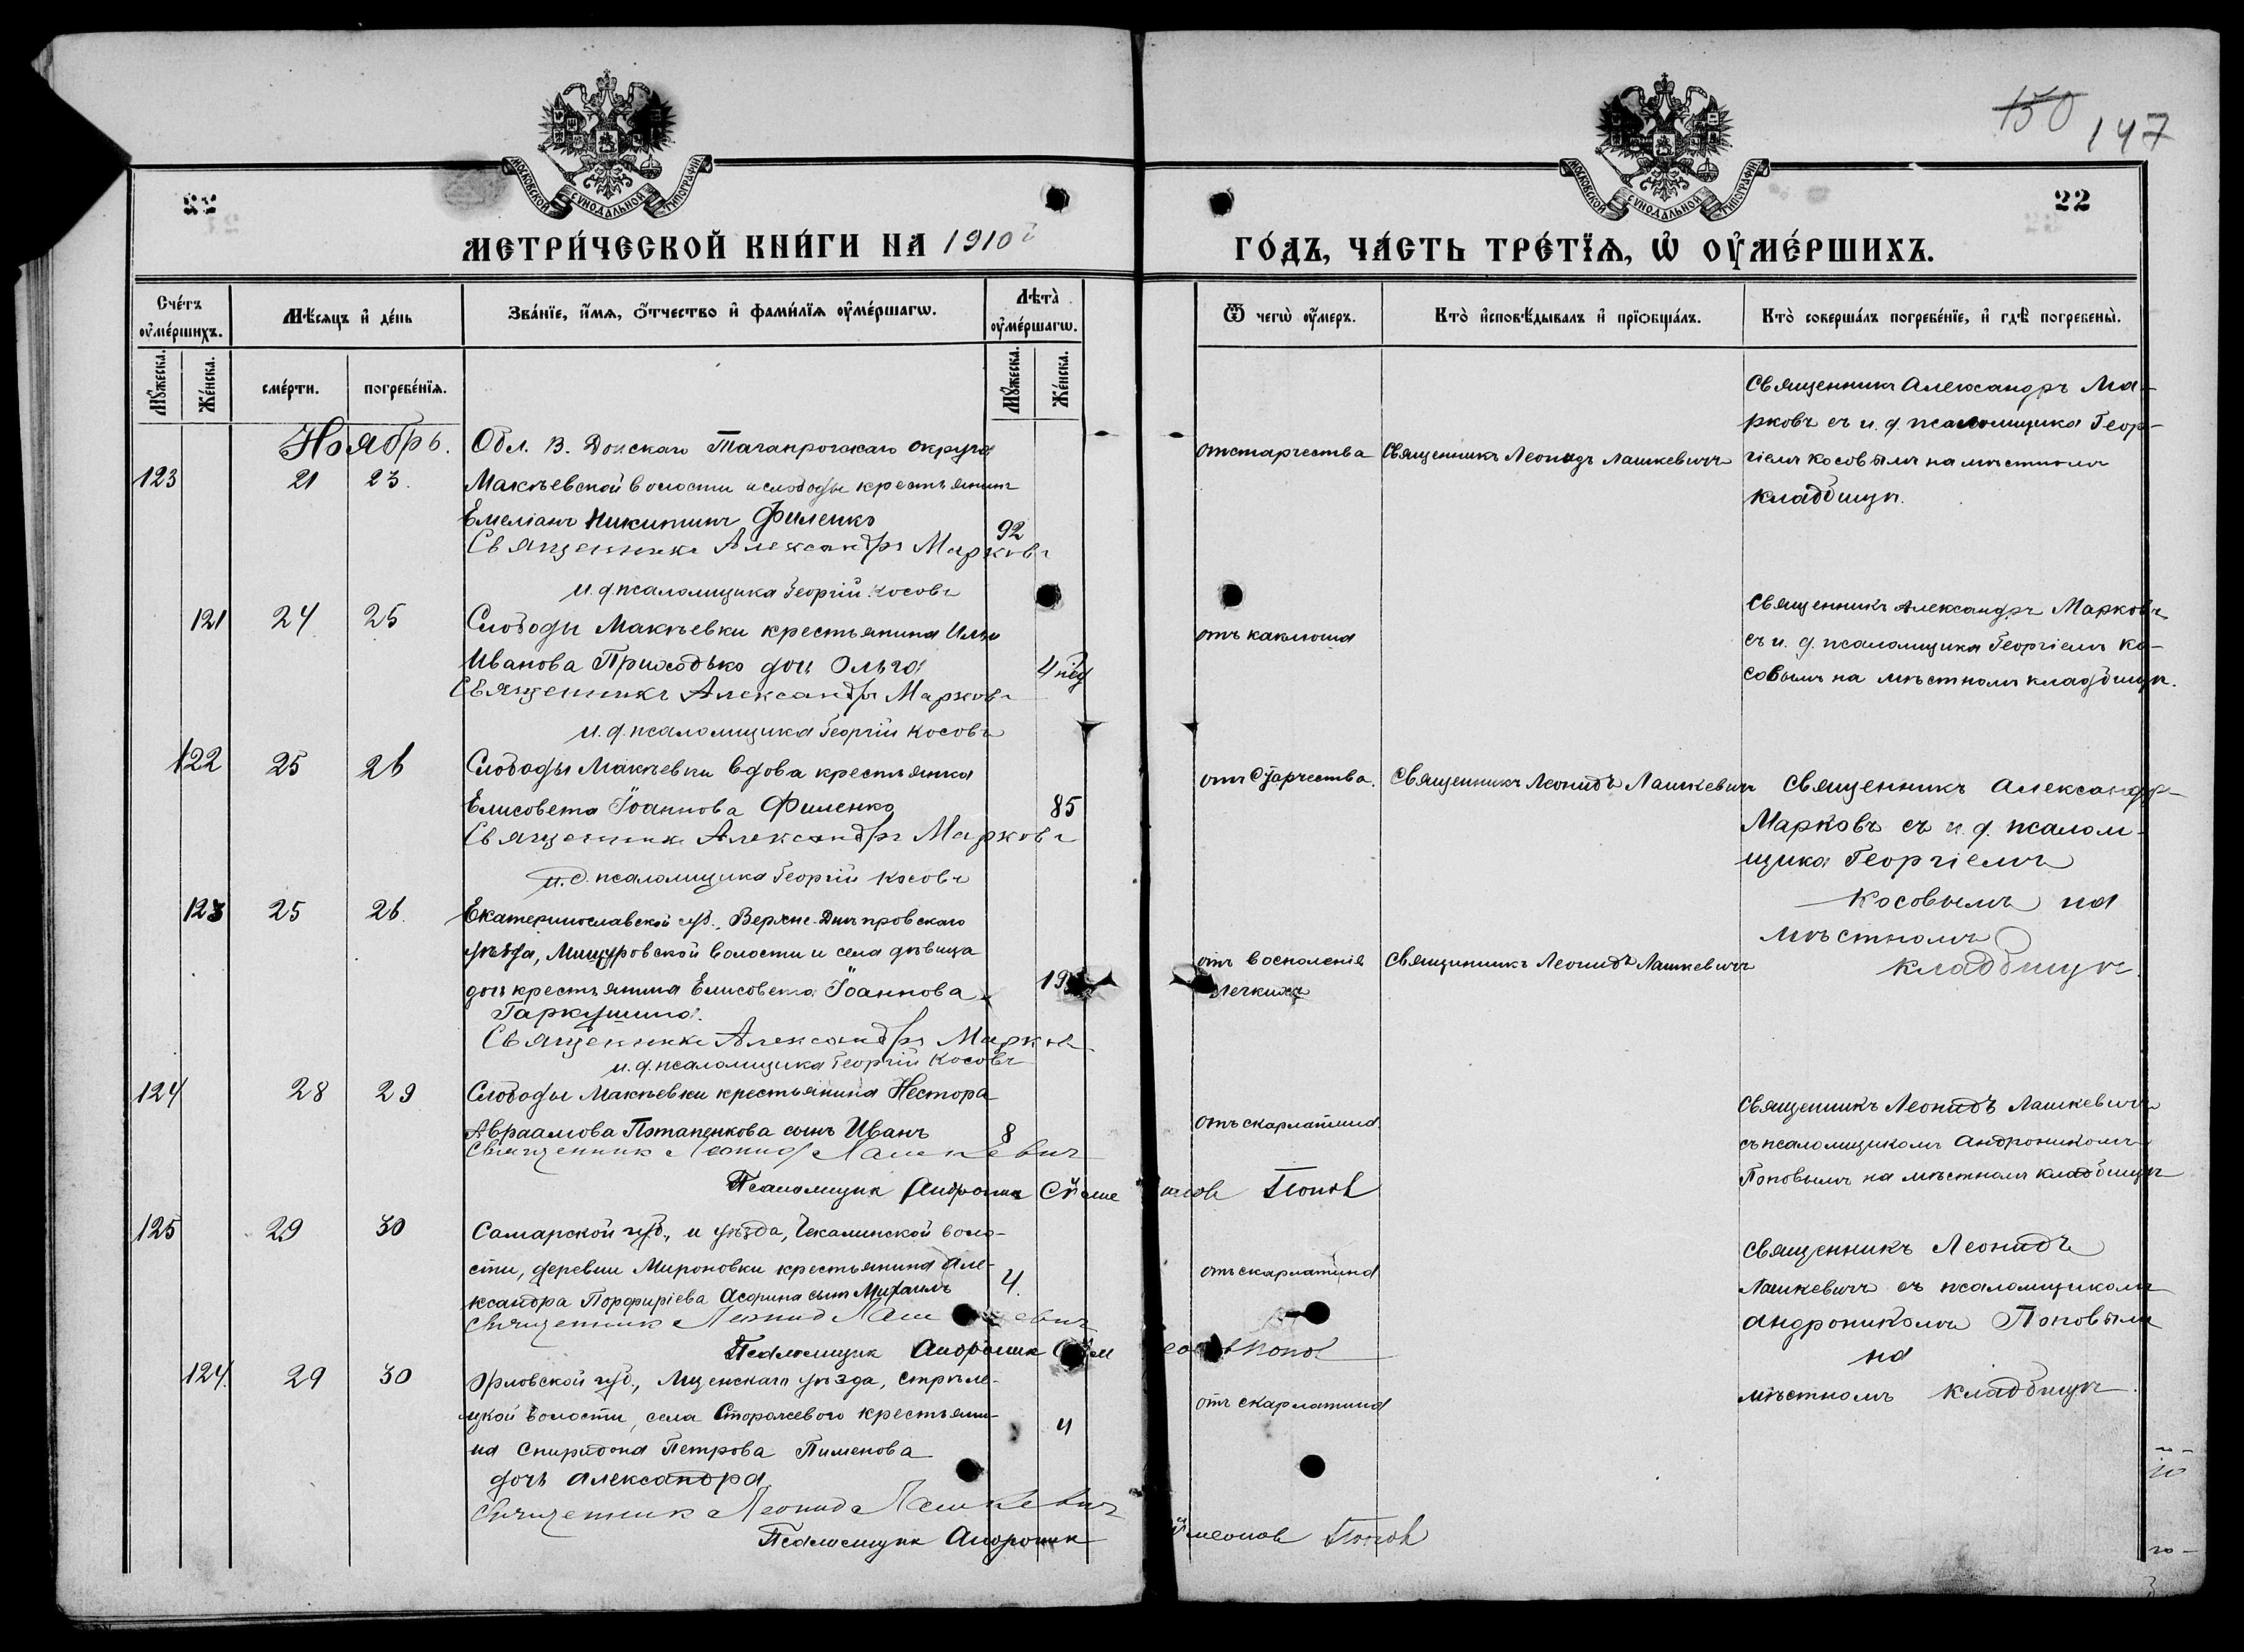 150 147
МОСКОВСКОЙ СУНОДАЛЬНОЙ ТИПОГРАФІИ
МОСКОВСКОЙ СУНОДАЛЬНОЙ ТИПОГРАФІИ
22
МЕТРИ́ЧЕСКОЙ КНИ́ГИ НА 1910
ГО́ДЪ, ЧА́СТЬ ТРЕ́ТЇѦ, Ѡ҆ ОУ҆МЕ́РШИХЪ.
Сче́тъ оу҆ме́ршихъ.
Мѣ́сяцъ и҆ де́нь
Зва́нїе, и҆́мѧ, ѻ҆́тчество и҆ фами́лїѧ оу҆ме́ршагѡ.
Лѣта̀ оу҆ме́ршагѡ.
Мꙋ́жеска. Же́нска.
сме́рти. погребе́нїѧ.
Мꙋ́жеска. Же́нска.
Ѿ чегѡ̀ оу҆́меръ.
Кто̀ и҆сповѣ́дывалъ и҆ прїѡбща́лъ.
Кто̀ соверша́лъ погребе́нїе, и҆ гдѣ̀ погребены̀.
Ноябрь.
123 21 23.
Обл. В. Донскаго Таганрогскаго округа
Макѣевской волости и слободы крестьянинъ
Емеліанъ Никитинъ Филенко
92
Священникъ Александръ Марковъ
и. д. псаломщика Георгій Косовъ
отъ старчества
Священникъ Леонидъ Лашкевичъ
Священникъ Александръ Ма-
рковъ съ и. д. псаломщика Геор-
гіемъ Косовымъ на мѣстномъ
кладбищѣ.
121 24 25
Слободы Макѣевки крестьянина Ильи
Иванова Приходько дочь Ольга
4 нед
Священникъ Александръ Марковъ
и. д. псаломщика Георгій Косовъ
отъ коклюша
Священникъ Александръ Марковъ
съ и. д. псаломщика Георгіемъ Ко-
совымъ на мѣстномъ кладбищѣ.
122 25 26
Слободы Макѣевки вдова крестьянка
Елисовета Іоаннова Филенко
85
Священникъ Александръ Марковъ
и. д. псаломщика Георгій Косовъ
отъ старчества.
Священникъ Леонидъ Лашкевичъ
Священникъ Александръ
Марковъ съ и. д. псалом-
щика Георгіемъ
Косовымъ на
мѣстномъ
кладбищѣ.
123 25 26.
Екатеринославской губ., Верхне-Днѣпровскаго
уѣзда, Мишуровской волости и села дѣвица
дочь крестьянина Елисовета Іоаннова
Гаркушина.
19
Священникъ Александръ Марковъ
и. д. псаломщика Георгій Косовъ
отъ восполенія
легкихъ
Священникъ Леонидъ Лашкевичъ
124 28 29
Слободы Макѣевки крестьянина Нестора
Авраамова Потапенкова сынъ Иванъ
8
Священникъ Леонидъ Лашкевичъ
Псаломщикъ Андроникъ Попов
отъ скарлатина
Священникъ Леонидъ Лашкевичъ
съ псаломщикомъ Андроникомъ
Поповымъ на мѣстномъ кладбищѣ
125 29 30
Самарской губ., и уѣзда, Чекалинской воло-
сти, деревни Мироновки крестьянина Але-
ксандра Порфиріева сынъ Михаилъ
4.
Священникъ Леонид Лашкевич
Псаломщик Андроник Попов
отъ скарлатина
Священникъ Леонидъ
Лашкевичъ съ псаломщикомъ
Андроникомъ Поповымъ
на
мѣстномъ кладбищѣ.
124. 29 30
Орловской губ., Мценскаго уѣзда, Стрѣле-
цкой волости, села Сторожевого крестьяни-
на Спиридона Петрова Пименова
дочь Александра
4
Священник Леонид Лашкевич
Псаломщик Андроник Симеонов Попов
отъ скарлатина